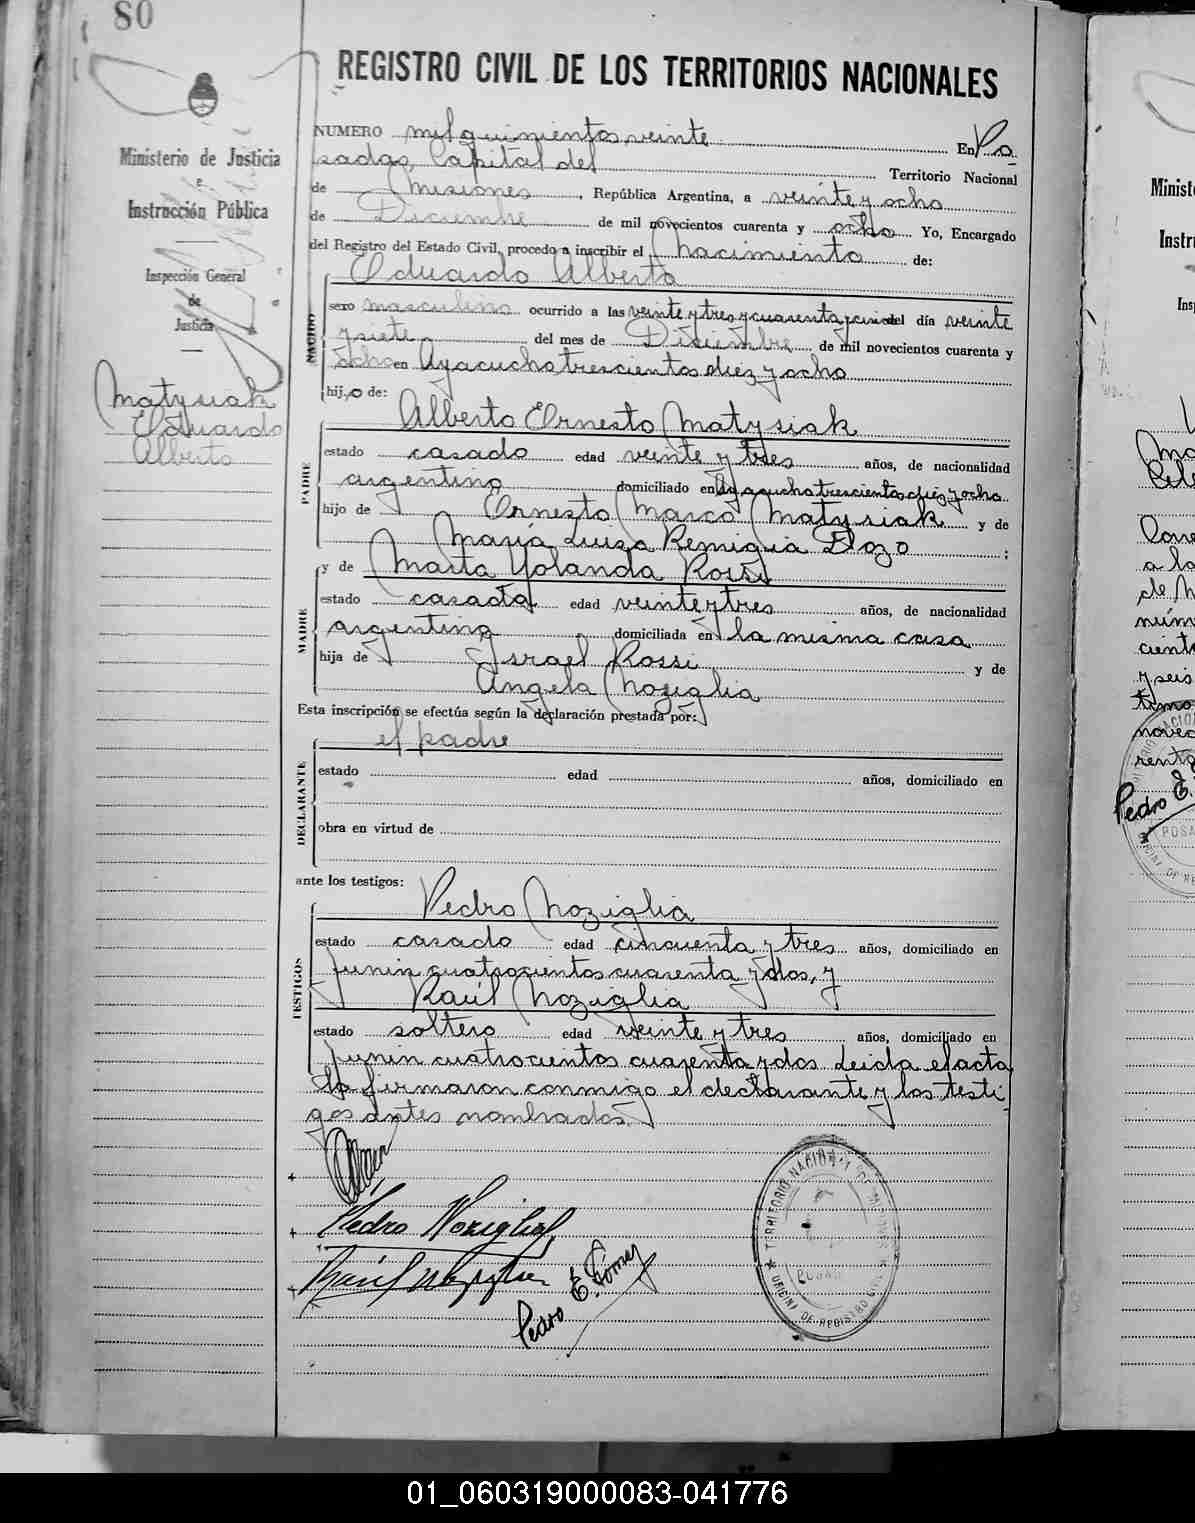 80
REGISTRO CIVIL DE LOS TERRITORIOS NACIONALES
Ministerio de Justicia
e
Instrucción Pública
Inspección General
de
Justicia
Matysiak
Eduardo
Alberto
NUMERO mil quinientos veinte En Po
sadas, Capital del Territorio Nacional
de Misiones, República Argentina, a veinte y ocho
de Diciembre de mil novecientos cuarenta y ocho Yo, Encargado
del Registro del Estado Civil, procedo a inscribir el Nacimiento de:
Eduardo Alberto
NACIDO
sexo masculino ocurrido a las veinte y tres y cuarenta y cinco del día veinte
y siete del mes de Diciembre de mil novecientos cuarenta y
ocho en Ayacucho trescientos diez y ocho
hijo de:
Alberto Ernesto Matysiak
PADRE
estado casado edad veinte y tres años, de nacionalidad
argentino domiciliado en Ayacucho trescientos diez y ocho
hijo de Ernesto Marco Matysiak y de
María Luisa Remigia Dozo ;
y de Marta Yolanda Rossi
MADRE
estado casada edad veinte y tres años, de nacionalidad
argentina domiciliada en la misma casa
hija de Israel Rossi y de
Angela Noziglia
Esta inscripción se efectúa según la declaración prestada por:
el padre
DECLARANTE
estado edad años, domiciliado en
obra en virtud de
ante los testigos:
Pedro Noziglia
TESTIGOS
estado casado edad cincuenta y tres años, domiciliado en
Junin cuatrocientos cuarenta y dos, y
Raúl Noziglia
estado soltero edad veinte y tres años, domiciliado en
Junin cuatrocientos cuarenta y dos. Leida el acta
la firmaron conmigo el declarante y los testi
gos antes nombrados.
Pedro Noziglia
Raúl Noziglia
Pedro E. Gómez
TERRITORIO NACIONAL DE MISIONES
POSADAS
OFICINA DE REGISTRO CIVIL
Minist
Instr
Ins
Pedro E.
POSA
01_060319000083-041776